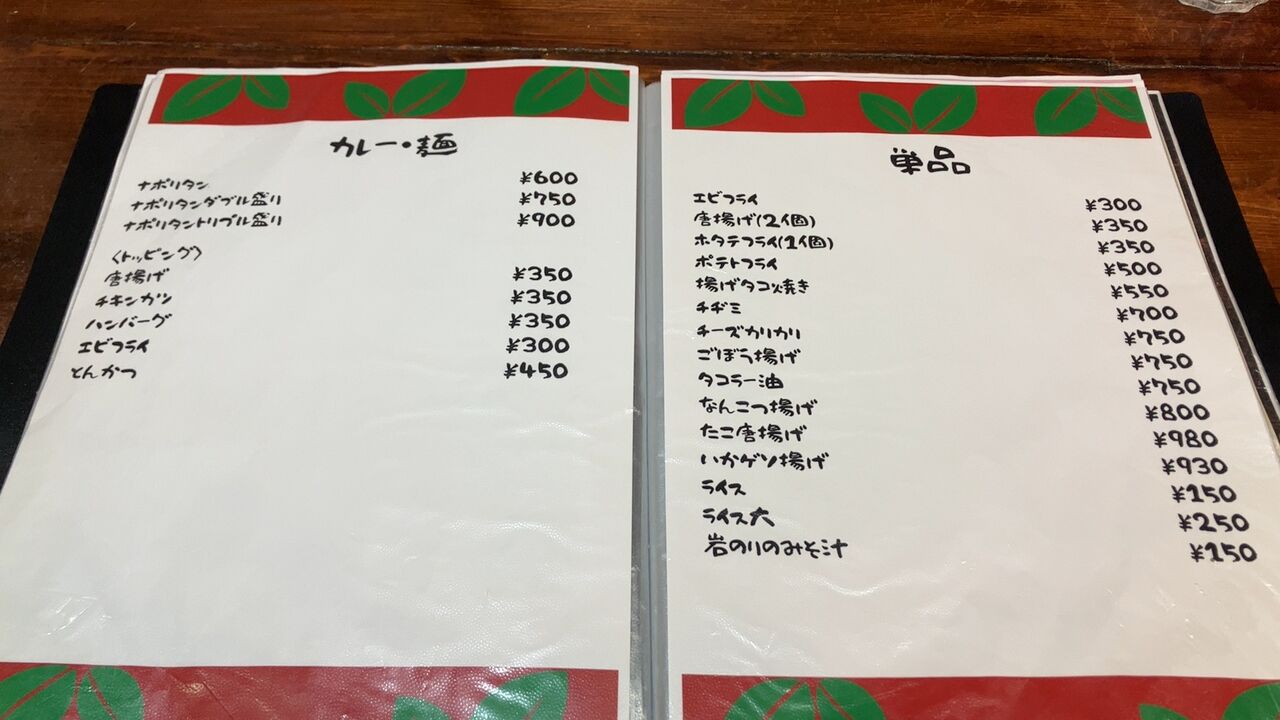 カレー・麺
ナポリタン ¥600
ナポリタンダブル盛り ¥750
ナポリタントリプル盛り ¥900
〈トッピング〉
唐揚げ ¥350
チキンカツ ¥350
ハンバーグ ¥350
エビフライ ¥300
とんかつ ¥450
単品
エビフライ ¥300
唐揚げ(2個) ¥350
ホタテフライ(1個) ¥350
ポテトフライ ¥500
揚げタコ焼き ¥550
チヂミ ¥700
チーズカリカリ ¥750
ごぼう揚げ ¥750
タコラー油 ¥750
なんこつ揚げ ¥800
たこ唐揚げ ¥980
いかゲソ揚げ ¥930
ライス ¥150
ライス大 ¥250
岩のりのみそ汁 ¥150